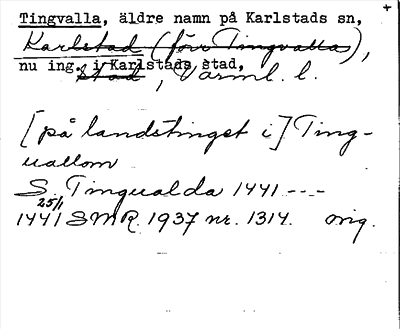 Tingvalla, äldre namn på Karlstads sn, +
Karlstad (förr Tingvalla),
nu ing. i Karlstads stad,
Stad, Värml. l.
[på landstinget i] Ting-
uallom
S. Tingualda 1441 ---
25/1
1441 SMR. 1937 nr. 1314. orig.